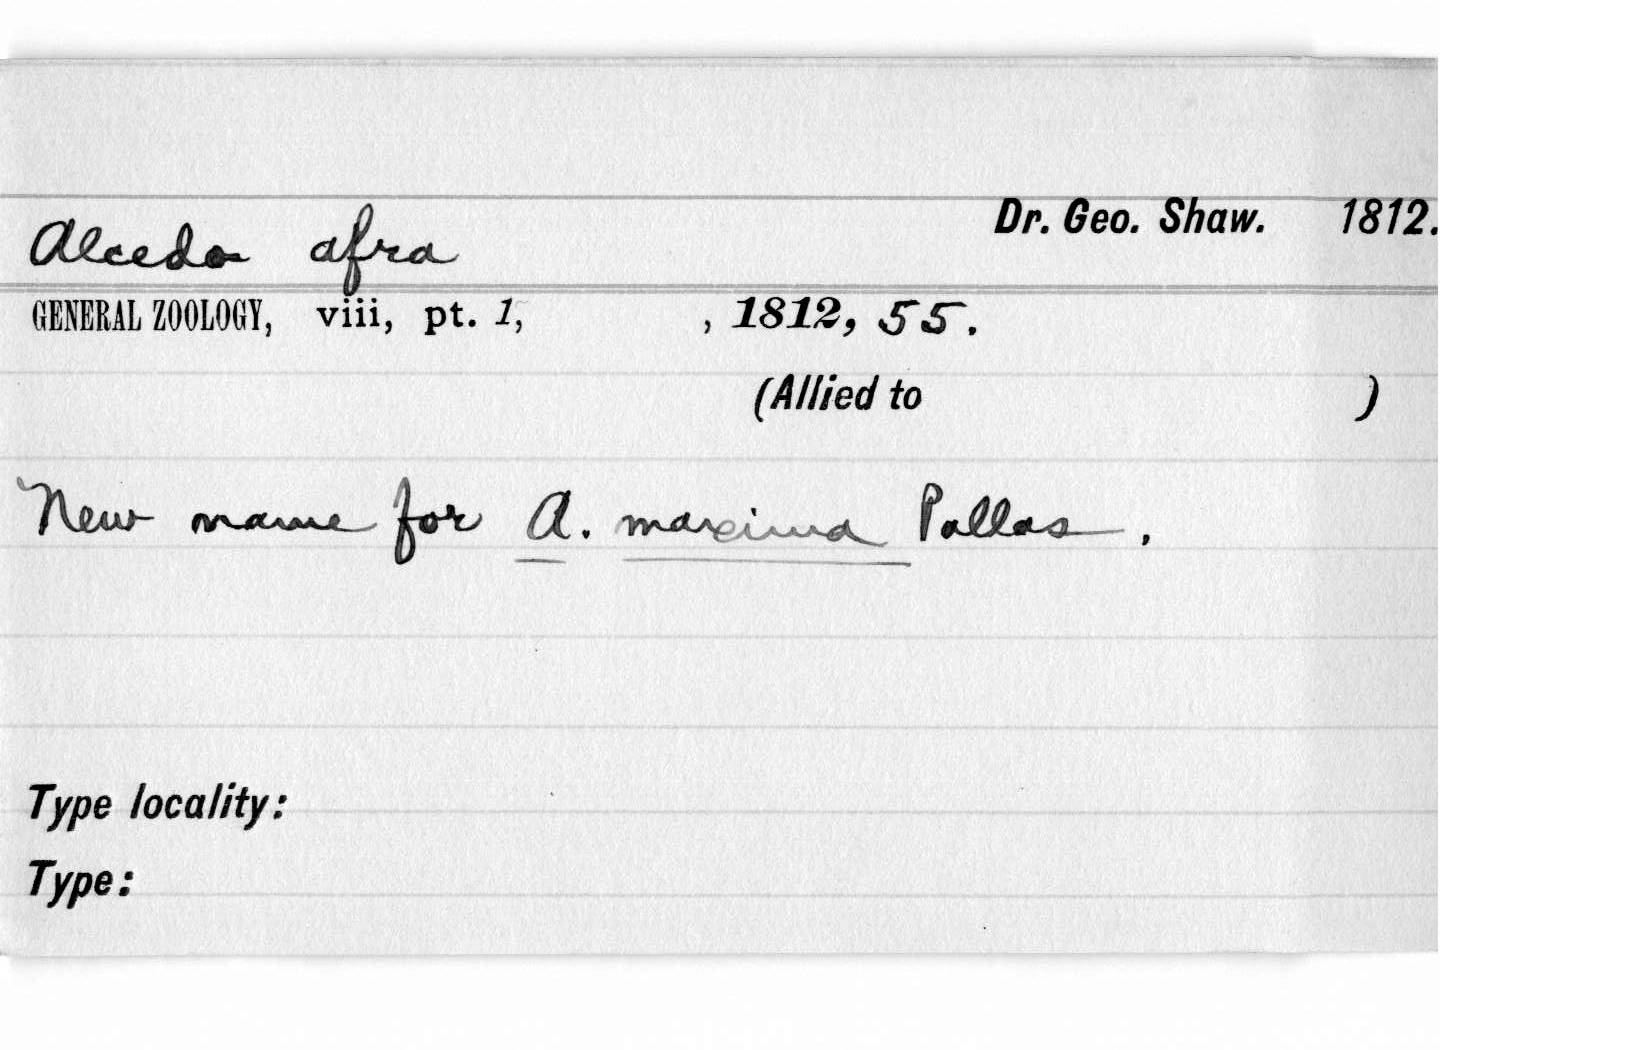 Alcedo afra Dr. Geo. Shaw. 1812.
GENERAL ZOOLOGY, viii, pt. 1, , 1812, 55.
(Allied to )
New name for A. maxima Pallas.
Type locality:
Type: